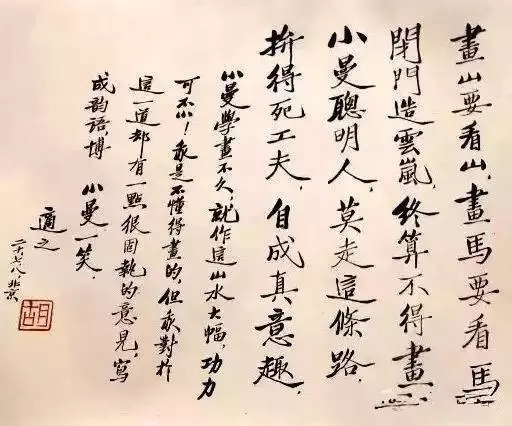 畫山要看山，畫馬要看馬
閉門造雲嵐，終算不得畫
小曼聰明人，莫走這條路，
拚得死工夫，自成真意趣，
小曼學畫不久，就作這山水大幅，功力
可不小！我是不懂得畫的，但我對於
這一道却有一點很固執的意見，寫
成韵語，博
小曼一笑．
適之
二十，七，八，北京
胡